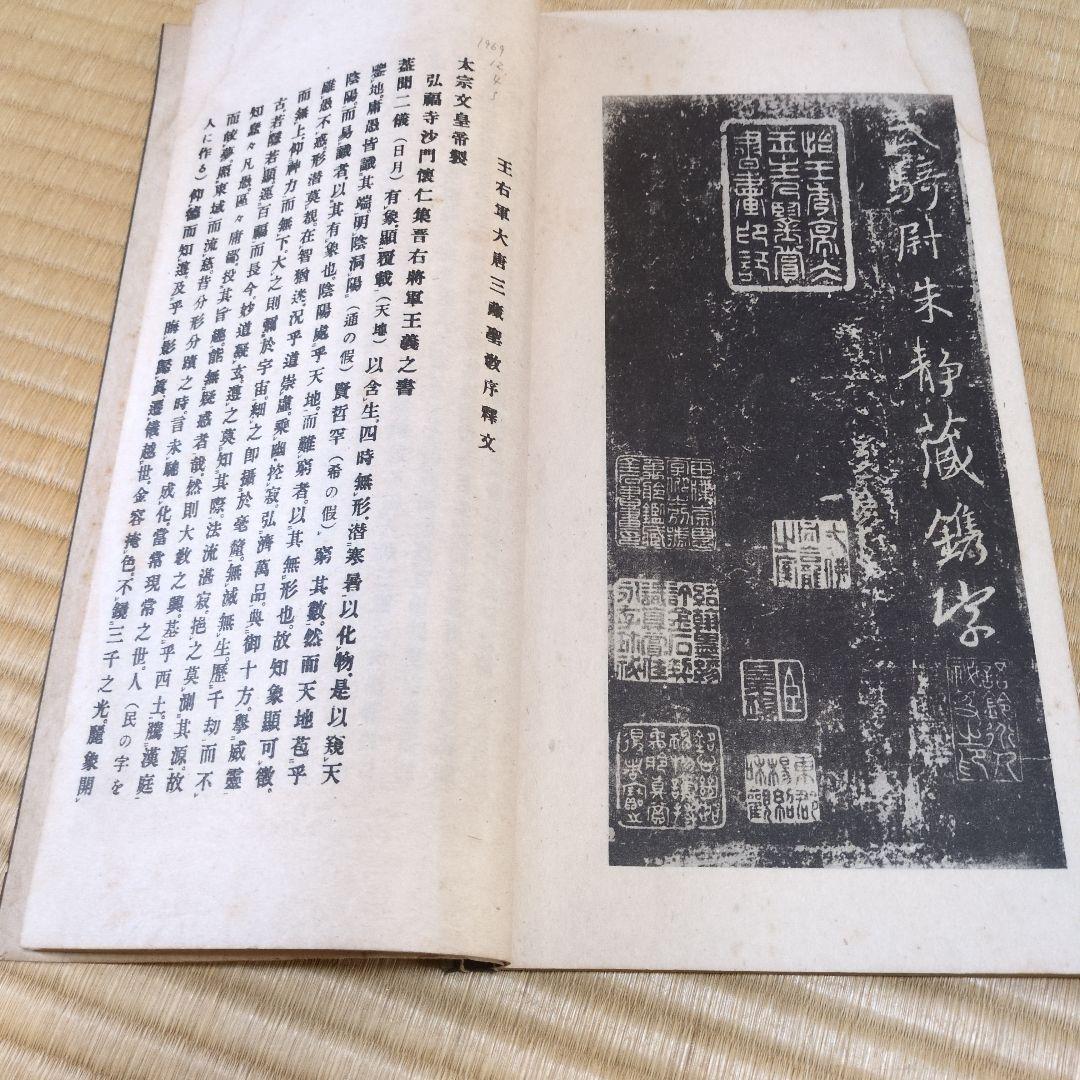 騎尉朱静蔵鐫字
1969
12
王右軍大唐三藏聖敎序釋文
太宗文皇帝製
弘福寺沙門懷仁集晋右將軍王羲之書
蓋聞二儀(日月)有象、顯覆載(天地)以含生。四時無形、潜寒暑以化物。是以窺天
鑒地、庸愚皆識其端。明陰洞陽(通の假)賢哲罕(希の假)窮其數。然而天地苞乎
陰陽、而易識者以其有象也。陰陽處乎天地、而難窮者、以其無形也。故知象顯可徵、
雖愚不惑。形潜莫覩、在智猶迷。況乎道崇虛、乘幽控寂、弘濟萬品、典御十方。擧威靈
而無上、仰神力而無下。大之則彌於宇宙、細之卽攝於毫釐。無滅無生、歷千劫而不
古。若隱若顯、運百福而長今。妙道凝玄、遵之莫知其際。法流湛寂、挹之莫測其源。故
知蠢々凡愚、區々庸鄙、投其旨趣、能無疑惑者哉。然則大敎之興、基乎西土。騰漢庭
而皎夢、照東域而流慈。昔分形分蹟之時、言未馳成化。當常現常之世、人(民の字を
人に作る)仰德而知遵。及乎晦影歸眞、遷儀越世、金容掩色、不鏡三千之光。麗象開